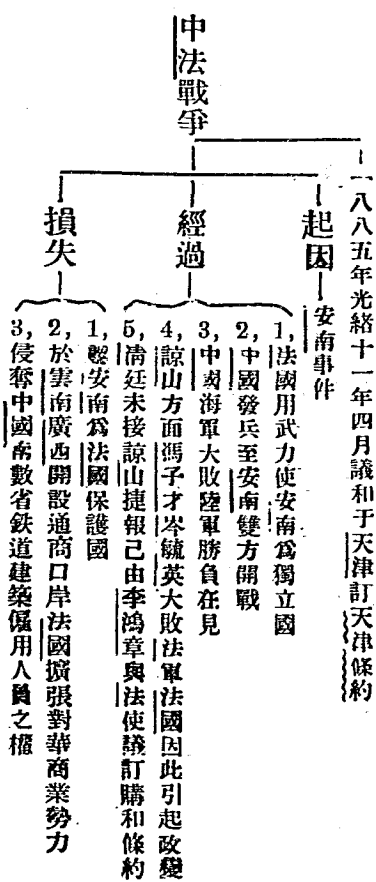 中法戰爭
一八八五年光緒十一年四月議和于天津訂天津條約
起因
安南事件
經過
1,法國用武力使安南爲獨立國
2,中國發兵至安南雙方開戰
3,中國海軍大敗陸軍勝負在見
4,諒山方面馮子才岑毓英大敗法軍法國因此引起政變
5,清廷未接諒山捷報己由李鴻章與法使議訂購和條約
損失
1,安南爲法國保護國
2,於雲南廣西開設通商口岸法國擴張對華商業勢力
3,侵奪中國南數省鉄道建築僱用人員之權